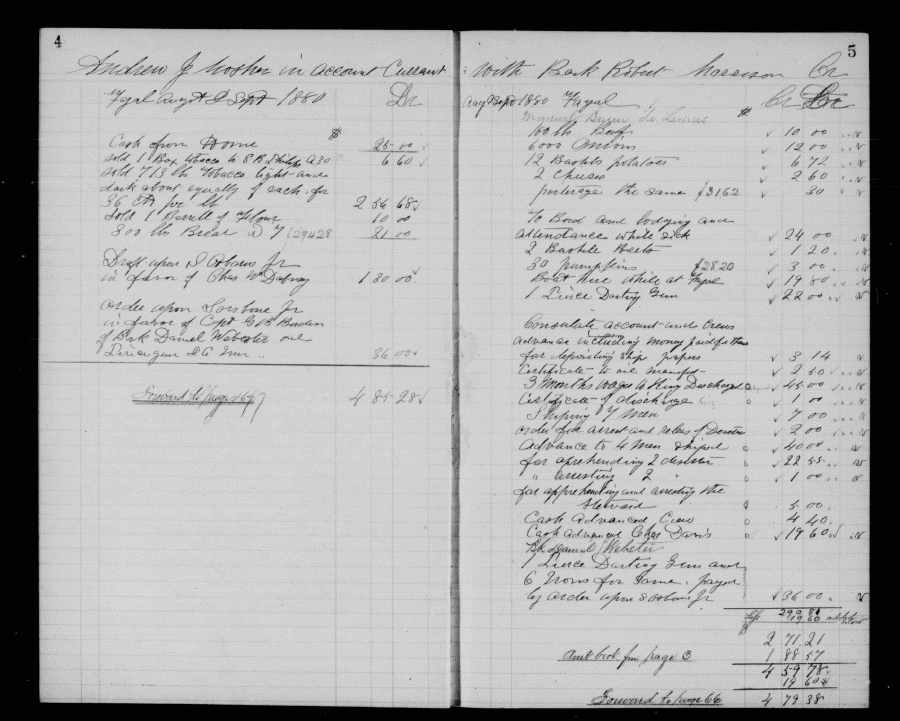 4
Andrew J Mosher in account Currant
Fayal Augst & Sept 1880 Dr
$
Cash from Home 25 00
Sold 1 Box tobacco to E B Philips @30 6 60
Sold 713 lbs Tobacco light and
dark about equally of each for
36 cts per lb 2 56 68
Sold 1 Barrell of Flour 10 00
300 lbs Bread @ 7 129428 21 00
Draft upon J Osborne Jr
in favor of Chas W Dabney 1 30 00
Order upon J Osborne Jr
in favor of Capt
of Bark Daniel Webster one
Pierce gun & 6 Irons 36 00
Forward to page 167
4 85 28
5
with Bark Robert Morrison Cr
Aug & Sept 1880 Fayal Cr
$
100 lbs Beef 10 00
6000 Onions 12 00
12 Bushels potatoes 6 72
2 Cheeses 2 60
porterage the same $31.62 30
To Bord and lodging and
attendance while sick 24 00
2 Bushels Beets 1 20
30 pumpkins $28.20 3 00
Boat hire while at Fayal 19 80
1 Pierce Darting Gun 22 00
Consulate account and Crews
advance including money paid
for depositing Ship papers 3 14
Certificate to oil manifest 2 50
3 Months wages to King Discharged 45 00
Certificate of discharge 1 00
Shiping 7 Men 7 00
order for arrest and release of Deserter 2 00
Advance to 4 Men Shiped 40 00
for aprehending 2 deserter 22 55
" arresting 2 " 1 00
for apprehending and arresting the
Steward 5 00
Cash Advanced Crew 4 40
Cash advanced Chas Davis 19 60
Bk Daniel Webster
1 Pierce Darting Gun and
6 Irons for same. payed
by order upon J Osborne Jr 36 00
290 81
19 60
2 71 21
Amt brot from page 3 1 88 57
4 59 78
19 60
Forward to page 66 4 79 38